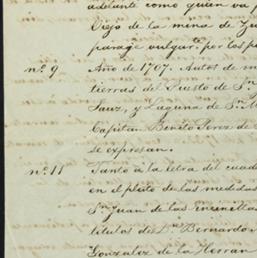 adelante como quien va p
Viejo de la mina de Zu
parage vulgar.te por los pa
nº. 9 Año de 1707. Autos de m
tierras del Puesto de Sn.
Sauz, y Laguna de Sn. M
Capitan Benito Perez de
se expresan.
nº. 11 Tanto á la letra del cuad
en el pleito de las medidas
Sn. Juan de las
titulos de Dn. Bernardo
Gonzalez de la Herran